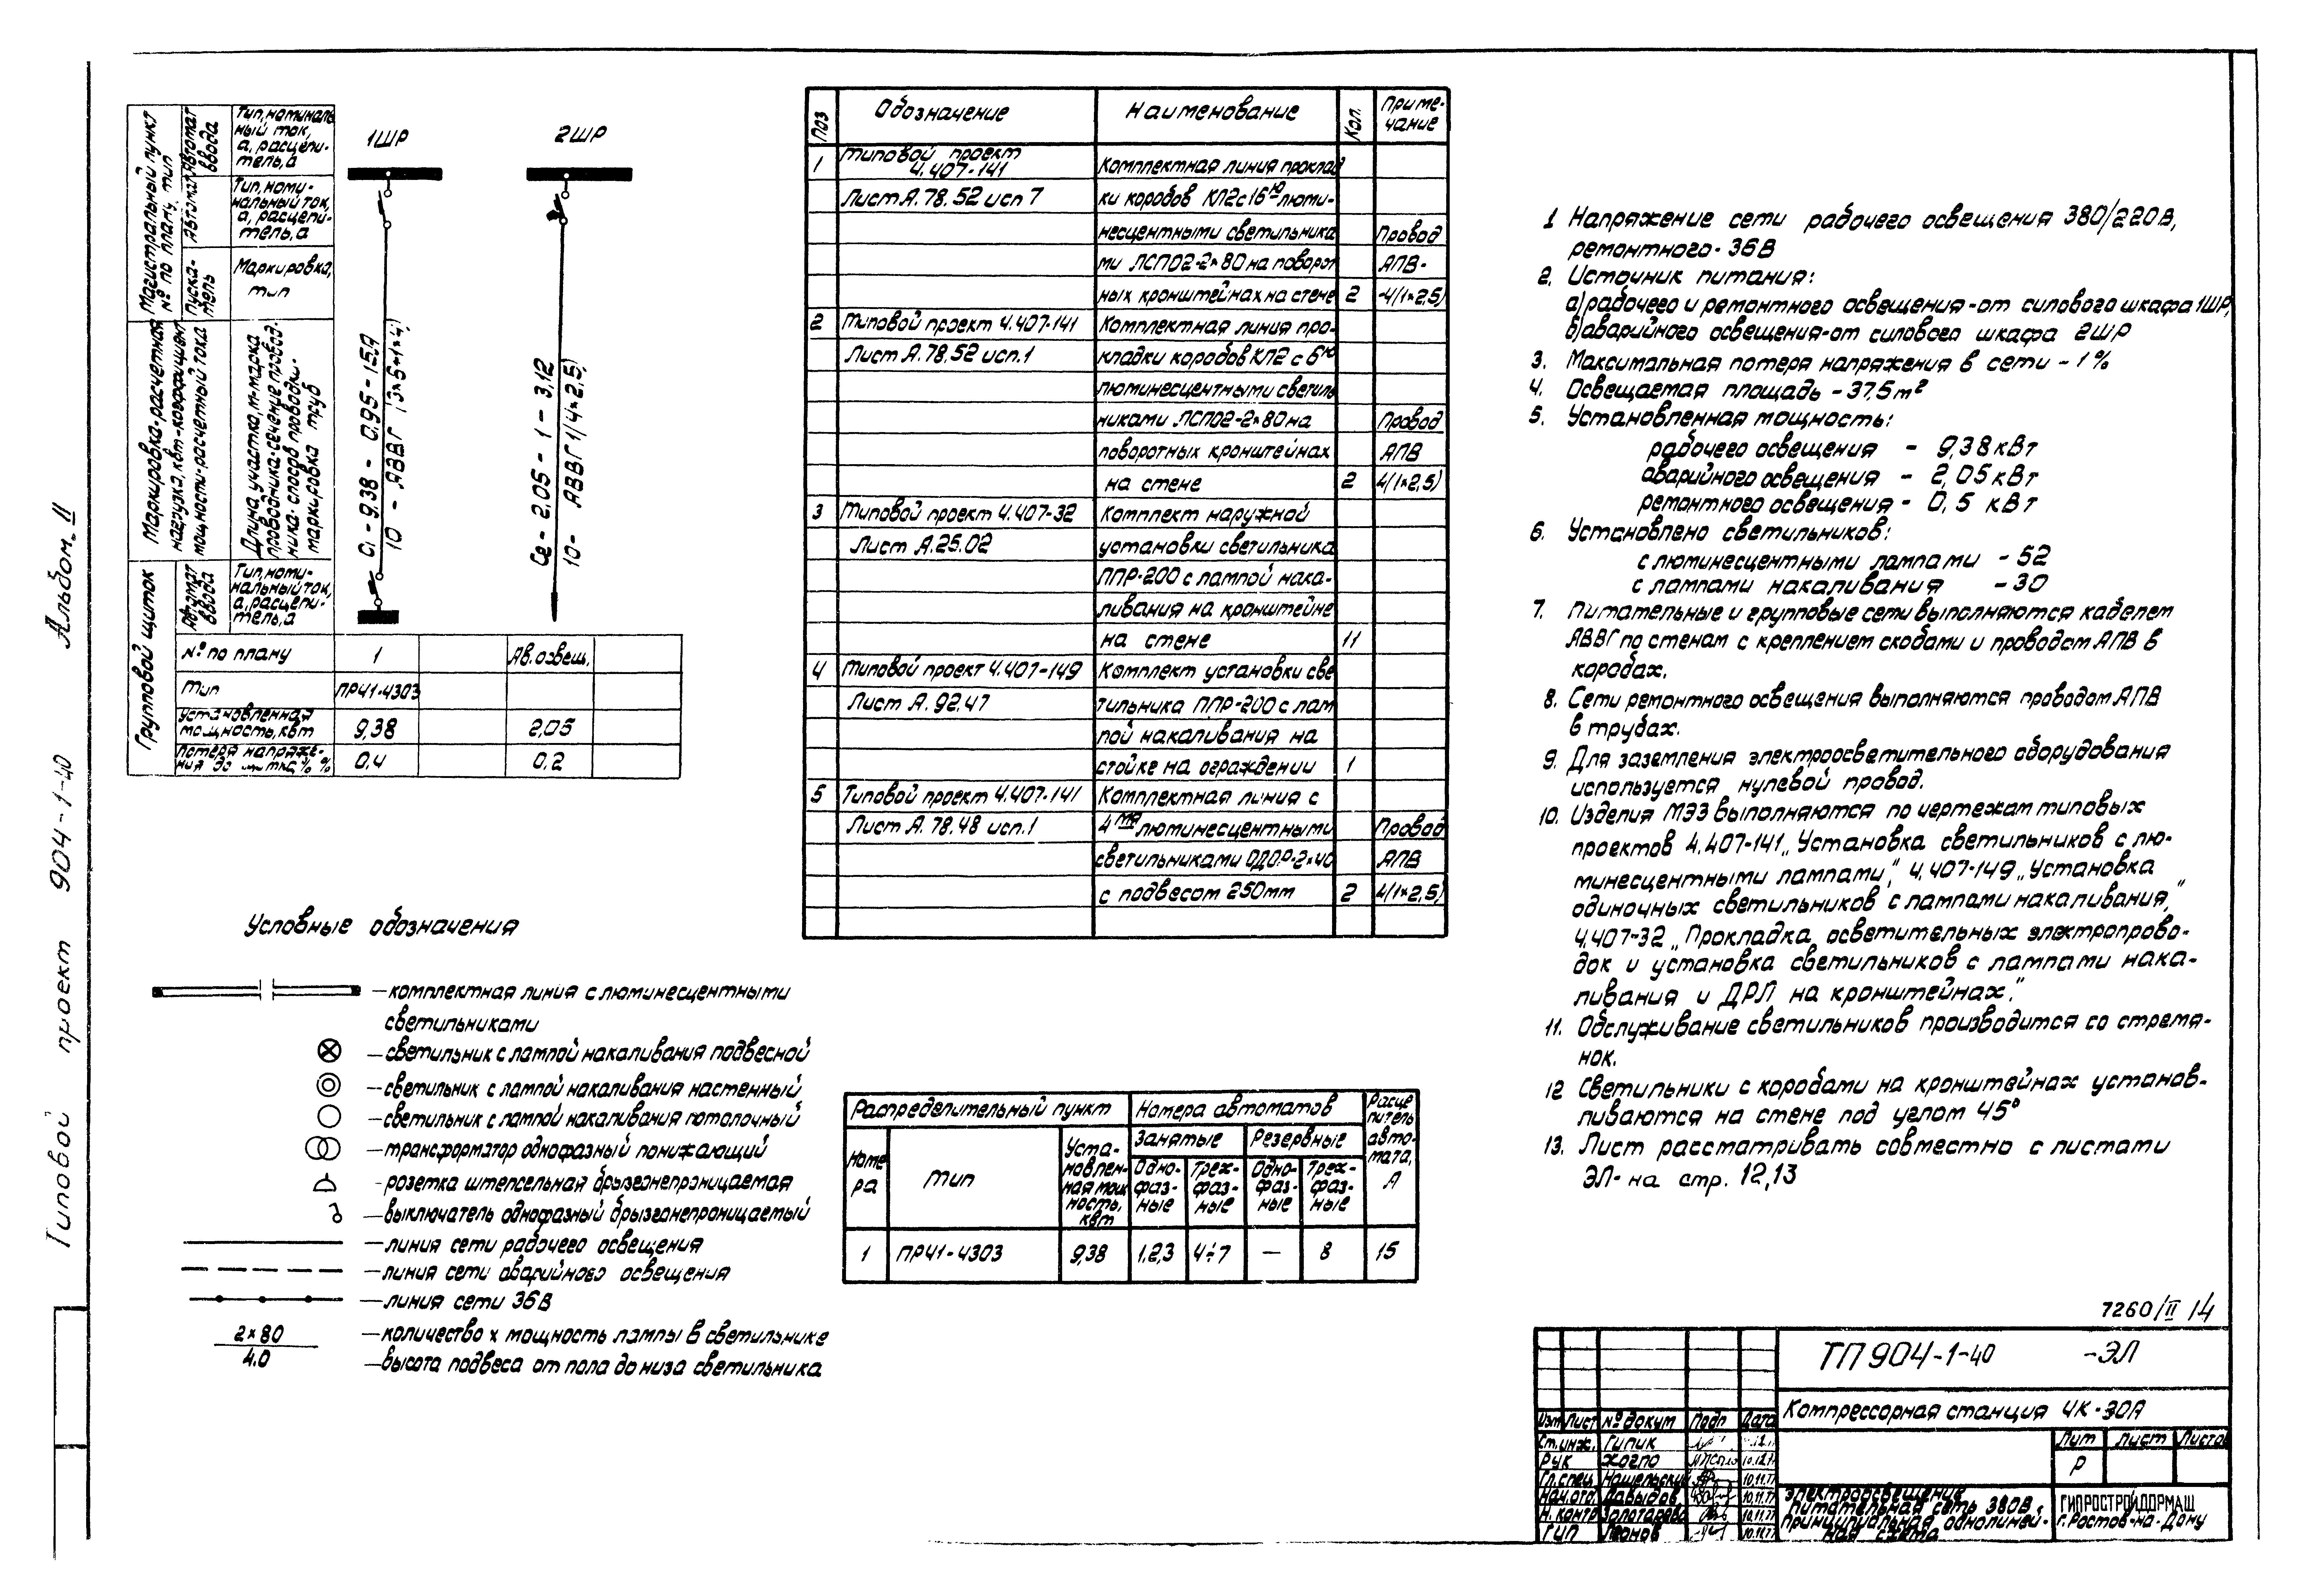 Типовой проект 904-1-40 Альбом. II
Магистральный пункт
№ по плану, тип
Автомат ввода
Тип, номиналь-
ный ток,
а, расцепи-
тель, а
Автомат
Тип, номи-
нальный ток,
а, расцепи-
тель, а
Пуска-
тель
Маркировка,
тип
Маркировка-расчетная
нагрузка, квт-коэффициент
мощности-расчетный ток, а
Длина участка, м-марка
проводника-сечение провод-
ника-способ проводки-
маркировка труб
Групповой щиток
Автомат ввода
Тип, номи-
нальный ток,
а, расцепи-
тель, а
№ по плану 1 Ав. освещ.
Тип ПР41-4303
Установленная
мощность, квт 9,38 2,05
Потеря напряже-
ния до щитка, % % 0,4 0,2
1ШР
2ШР
C1 - 9.38 - 0,95 - 15А
10 - АВВГ (3×6+1×4)
C2 - 2,05 - 1 - 3,12
10 - АВВГ 1(4×2,5)
Условные обозначения
— комплектная линия с люминесцентными
светильниками
— светильник с лампой накаливания подвесной
— светильник с лампой накаливания настенный
— светильник с лампой накаливания потолочный
— трансформатор однофазный понижающий
- розетка штепсельная брызгонепроницаемая
— выключатель однофазный брызгонепроницаемый
— линия сети рабочего освещения
— линия сети аварийного освещения
— линия сети 36В
2×80 — количество х мощность лампы в светильнике
4.0 — высота подвеса от пола до низа светильника
Поз Обозначение Наименование Кол. Приме-
чание
1 Типовой проект
4.407-141 Комплектная линия проклад
Лист А.78.52 исп 7 ки коробов КЛ2 с 16ю люми-
несцентными светильника Провод
ми ЛСП02-2×80 на поворот АПВ-
ных кронштейнах на стене 2 -4(1×2,5)
2 Типовой проект 4.407-141 Комплектная линия про-
Лист А.78.52 исп.1 кладки коробов КЛ2 с 6ю
люминесцентными светиль
никами ЛСП02-2×80 на Провод
поворотных кронштейнах АПВ
на стене 2 4(1×2,5)
3 Типовой проект 4.407-32 Комплект наружной
Лист А.25.02 установки светильника
ППР-200 с лампой нака-
ливания на кронштейне
на стене 11
4 Типовой проект 4.407-149 Комплект установки све
Лист А.92.47 тильника ППР-200 с лам
пой накаливания на
стойке на ограждении 1
5 Типовой проект 4.407-141 Комплектная линия с
Лист А.78.48 исп.1 4мя люминесцентными Провод
светильниками ОДОР-2×40 АПВ
с подвесом 250мм 2 4(1×2,5)
Распределительный пункт Номера автоматов Расце
питель
авто-
мата,
А
Номе
ра Тип Уста-
новлен-
ная мощ
ность,
квт Занятые Резервные
Одно-
фаз-
ные Трех-
фаз-
ные Одно-
фаз-
ные Трех-
фаз-
ные
1 ПР41-4303 9,38 1,2,3 4÷7 — 8 15
1 Напряжение сети рабочего освещения 380/220В,
ремонтного-36В
2. Источник питания:
а) рабочего и ремонтного освещения-от силового шкафа 1ШР,
б) аварийного освещения-от силового шкафа 2ШР
3. Максимальная потеря напряжения в сети - 1%
4. Освещаемая площадь - 375м²
5. Установленная мощность:
рабочего освещения - 9,38 кВт
аварийного освещения - 2,05 кВт
ремонтного освещения - 0,5 кВт
6. Установлено светильников:
с люминесцентными лампами - 52
с лампами накаливания - 30
7. Питательные и групповые сети выполняются кабелем
АВВГ по стенам с креплением скобами и проводом АПВ в
коробах.
8. Сети ремонтного освещения выполняются проводом АПВ
в трубах.
9. Для заземления электроосветительного оборудования
используется нулевой провод.
10. Изделия МЭЗ выполняются по чертежам типовых
проектов 4.407-141 „Установка светильников с лю-
минесцентными лампами," 4.407-149 „Установка
одиночных светильников с лампами накаливания,"
4.407-32 „Прокладка осветительных электропрово-
док и установка светильников с лампами нака-
ливания и ДРЛ на кронштейнах."
11. Обслуживание светильников производится со стремя-
нок.
12 Светильники с коробами на кронштейнах установ-
ливаются на стене под углом 45°
13. Лист рассматривать совместно с листами
ЭЛ- на стр. 12,13
7260/II 14
ТП 904-1-40 -ЭЛ
Компрессорная станция 4К-30А
Изм Лист № докум Подп Дата
Ст. инж. Гипик
Рук Жогло
Гл. спец.
Нач. отд. Давыдов
Н. контр Золотарева
ГИП Леонов
Лит Лист Листов
Р
Электроосвещение
питательная сеть 380В,
принципиальная однолиней-
ная схема
ГИПРОСТРОЙДОРМАШ
г. Ростов-на-Дону